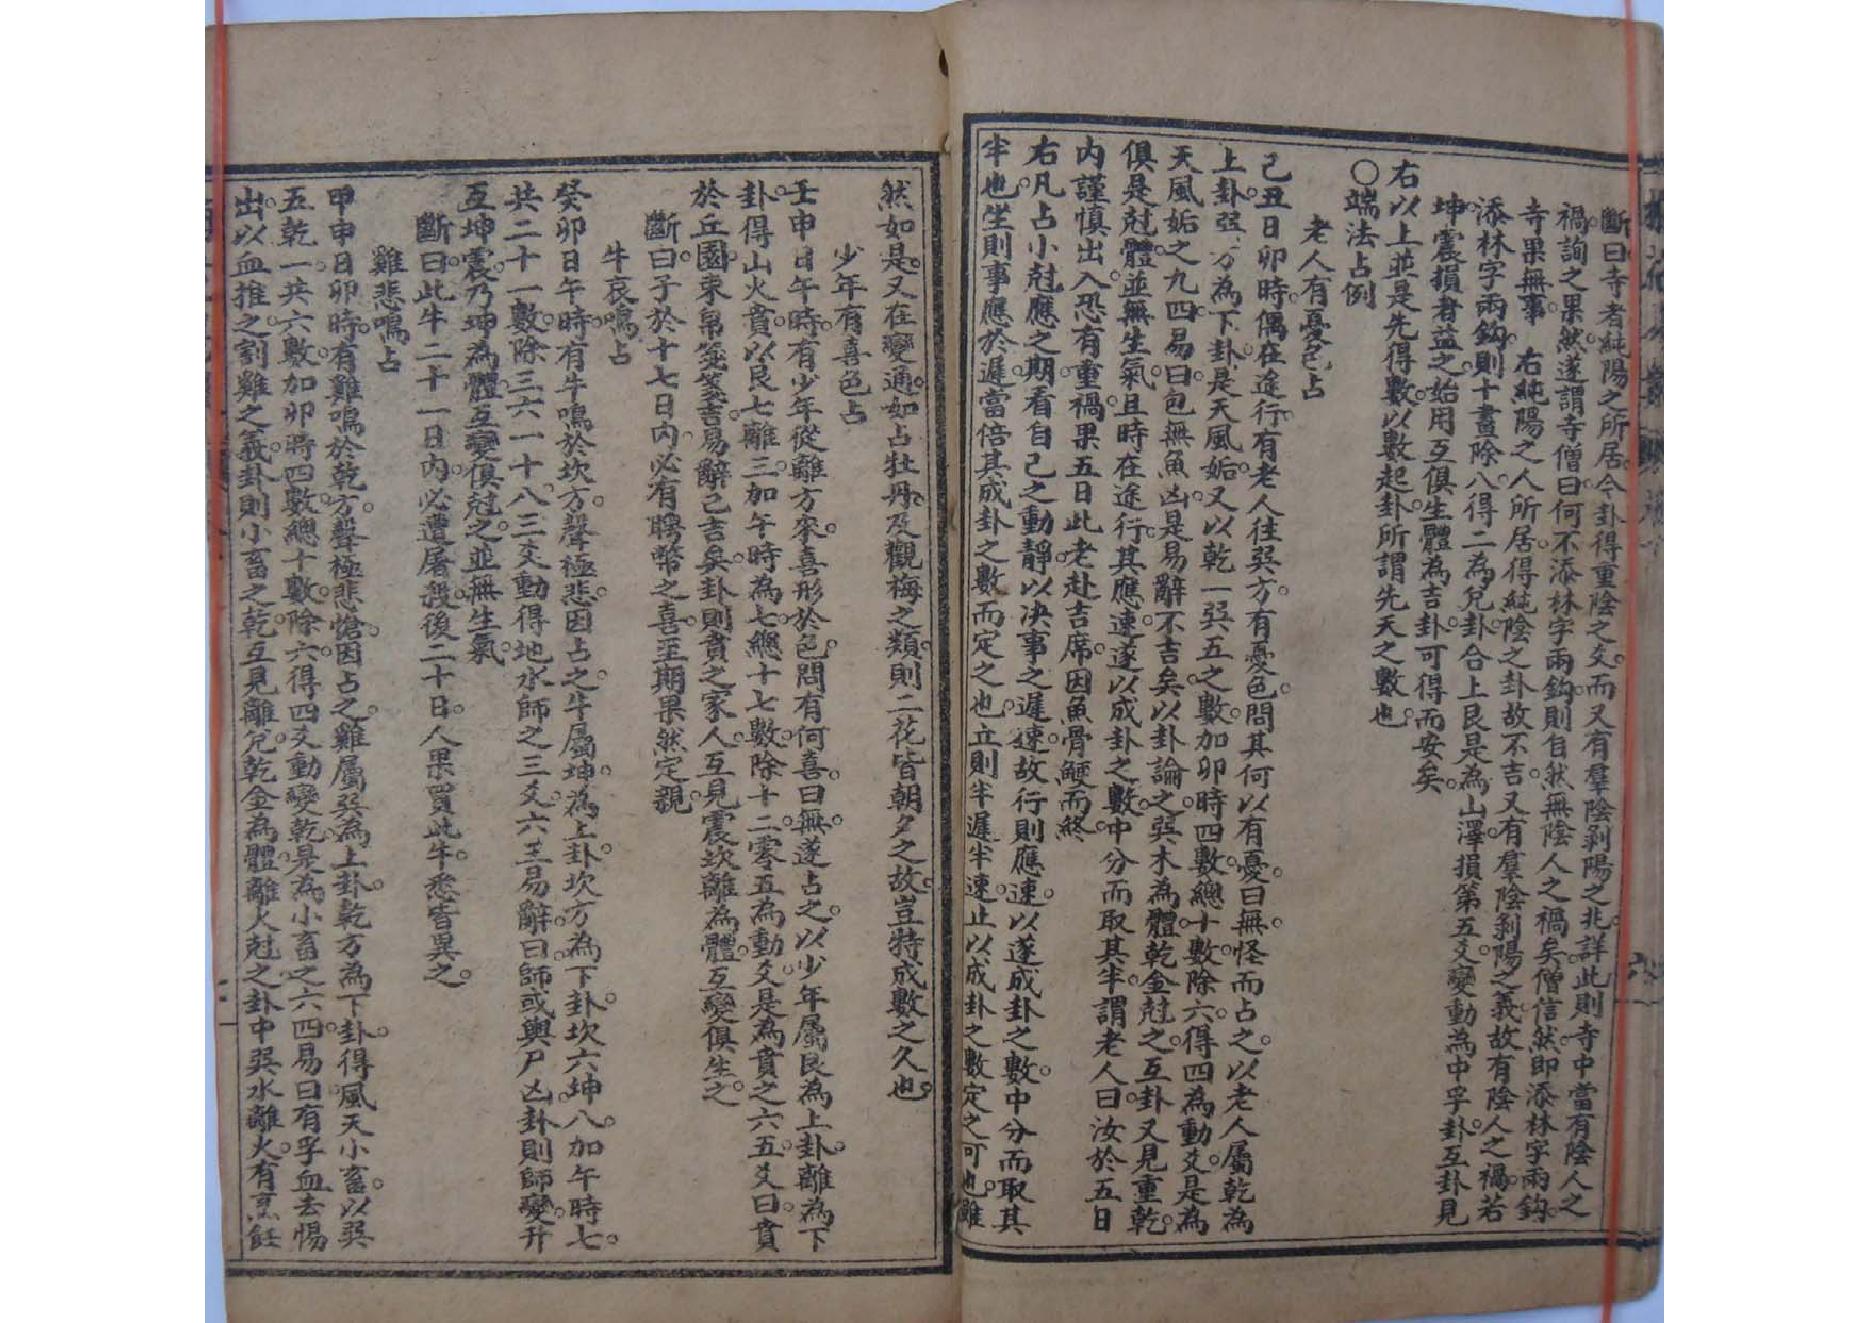 斷曰寺者純陽之所居今卦得重陰之爻而又有羣陰剥陽之兆詳此則寺中當有陰人之
禍詢之果然遂謂寺僧曰何不添林字兩鈎則自然無陰人之禍矣僧信然即添林字兩鈎
寺果無事 右純陽之人所居得純陰之卦故不吉又有羣陰剥陽之義故有陰人之禍若
添林字兩鈎則十畫除八得二為兌卦合上艮是為山澤損第五爻變動為中孚卦互卦見
坤震損者益之始用互俱生體為吉卦可得而安矣
右以上並是先得數以數起卦所謂先天之數也
○端法占例
老人有憂色占
己丑日卯時偶在途行有老人往巽方有憂色問其何以有憂曰無怪而占之以老人屬乾為
上卦巽方為下卦是天風姤又以乾一巽五之數加卯時四數總十數除六得四為動爻是為
天風姤之九四易曰包無魚凶是易辭不吉矣以卦論之巽木為體乾金尅之互卦又見重乾
俱是尅體並無生氣且時在途行其應速遂以成卦之數中分而取其半謂老人曰汝於五日
内謹慎出入恐有重禍果五日此老赴吉席因魚骨鯁而終
右凡占小尅應之期看自己之動靜以决事之遲速故行則應速以遂成卦之數中分而取其
半也坐則事應於遲當倍其成卦之數而定之也立則半遲半速止以成卦之數定之可也雖
然如是又在變通如占牡丹及觀梅之類則二花皆朝夕之故豈特成數之久也
少年有喜色占
壬申日午時有少年從離方來喜形於色問有何喜曰無遂占之以少年屬艮為上卦離為下
卦得山火賁以艮七離三加午時為七總十七數除十二零五為動爻是為賁之六五爻曰賁
於丘園束帛箋箋吉易辭已吉矣卦則賁之家人互見震坎離為體互變俱生之
斷曰子於十七日内必有聘幣之喜至期果然定親
牛哀鳴占
癸卯日午時有牛鳴於坎方聲極悲因占之牛屬坤為上卦坎方為下卦坎六坤八加午時七
共二十一數除三六一十八三爻動得地水師之三爻六三易辭曰師或輿尸凶卦則師變升
互坤震乃坤為體互變俱尅之並無生氣
斷曰此牛二十一日内必遭屠殺後二十日人果買此牛悉皆異之
雞悲鳴占
甲申日卯時有雞鳴於乾方聲極悲愴因占之雞屬巽為上卦乾方為下卦得風天小畜以巽
五乾一共六數加卯時四數總十數除六得四爻動變乾是為小畜之六四易曰有孚血去惕
出以血推之割雞之義卦則小畜之乾互見離兌乾金為體離火尅之卦中巽水離火有烹飪